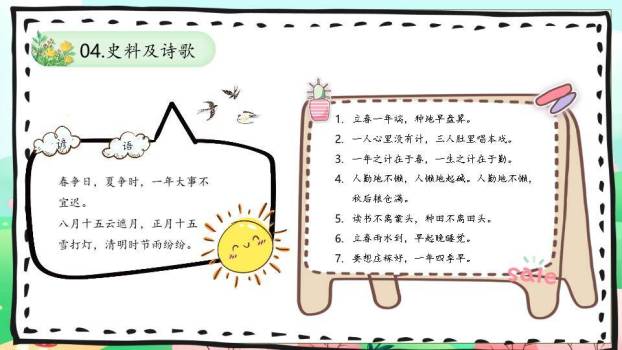 04.史料及诗歌
谚语
春争日，夏争时，一年大事不
宜迟。
八月十五云遮月，正月十五
雪打灯，清明时节雨纷纷。
1. 立春一年端，种地早盘算。
2. 一人心里没有计，三人肚里唱本戏。
3. 一年之计在于春，一生之计在于勤。
4. 人勤地不懒，人懒地起碱。人勤地不懒，
秋后粮仓满。
5. 读书不离案头，种田不离田头。
6. 立春雨水到，早起晚睡觉。
7. 要想庄稼好，一年四季早。
sale